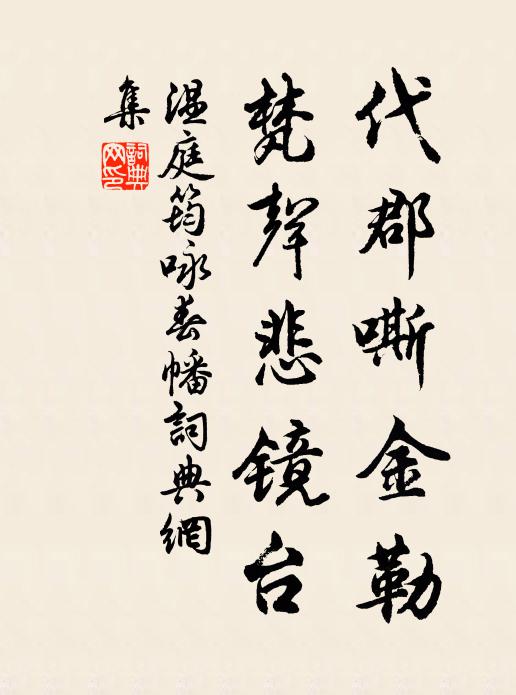 代郡嘶金勒
梵聲悲镜台
温庭筠咏春幡詞典網
集
詞典
网印